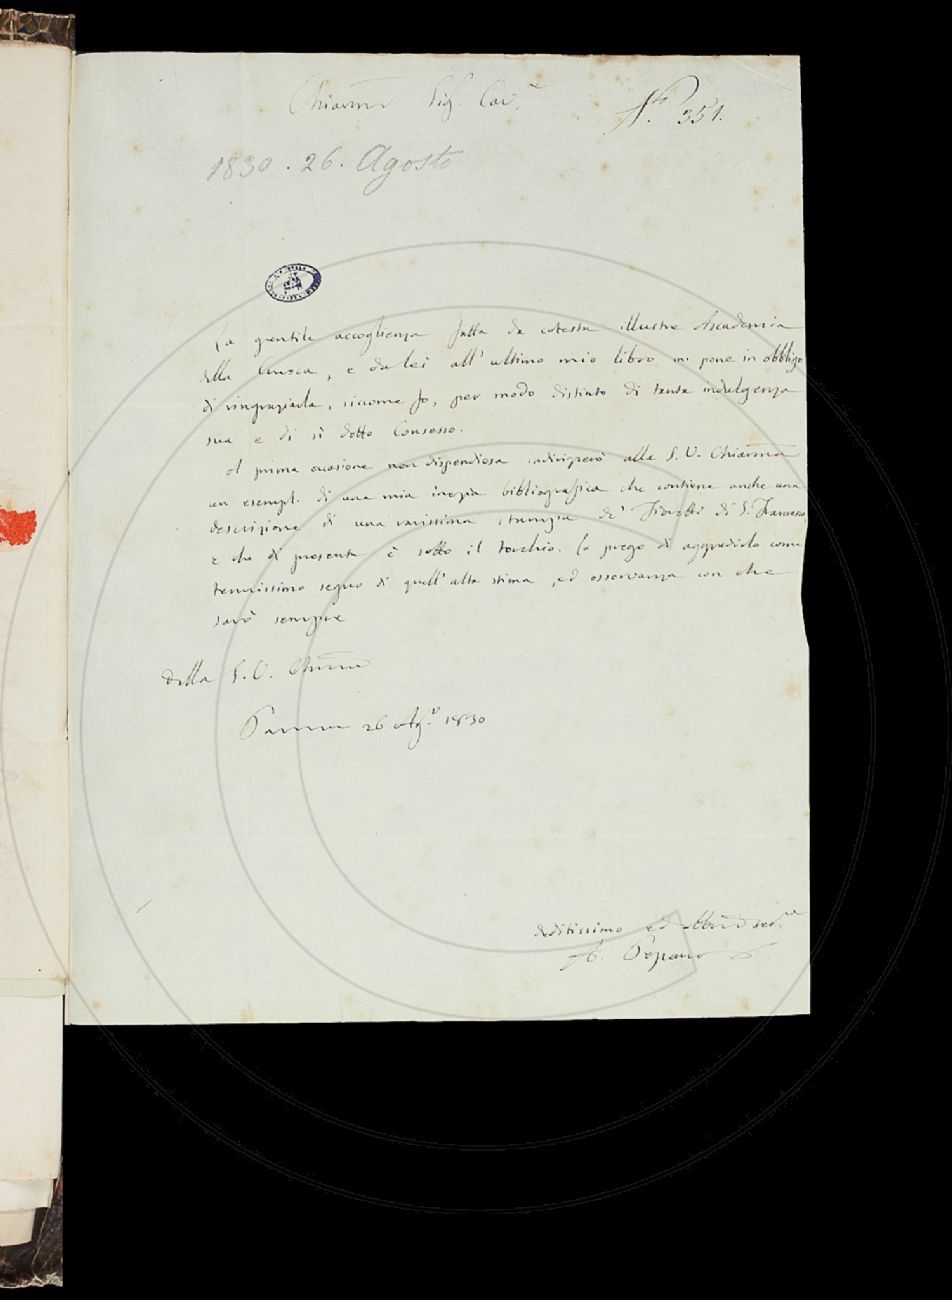 Chiarmo Sig. Cav.e
N.o 351.
1830. 26. Agosto
La gentile accoglienza fatta da cotesta illustre Accademia
della Crusca, e da lei all'ultimo mio libro mi pone in obbligo
di ringraziarla, siccome fo, per modo distinto di tanta indulgenza
sua e di sì dotto Consesso.
A prima occasione non dispendiosa indirigerò alla S. V. Chiarma
un esempl. di una mia inezia bibliografica che contiene anche una
descrizione di una rarissima stampa de' Fioretti di S. Francesco,
e che di presente è sotto il torchio. La prego di aggradirlo come
tenuissimo segno di quell'alta stima, ed osservanza con che
sarò sempre
della S. V. Chiarma
Parma 26. Ag.o 1830
deditissimo ed obbmo ser.e
A. Pezzana